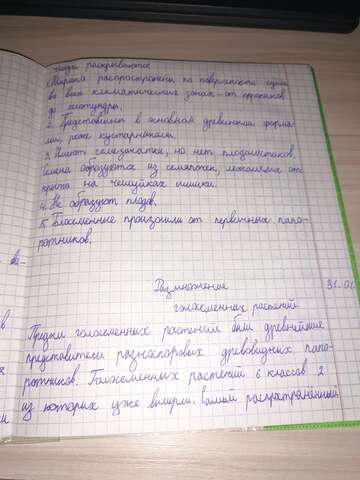 чешуи раскрываются
1. Широко распространены по поверхности суши
во всех климатических зонах – от тропиков
до лесотундры.
2. Представлены в основном древесными форма-
ми, реже кустарниками.
3. Имеют семязачатки, но нет плодолистиков.
Семена образуются из семяпочек, лежащих от-
крыто на чешуйках шишки.
4. Не образуют плодов.
5. Голосеменные произошли от первичных папо-
ротников.
Размножение 31.01
голосеменных растений
Предки голосеменных растений были древнейшие
представители разноспоровых древовидных папо-
ротников. Голосеменных растений 6 классов 2
из которых уже вымерли. Самый распространённый